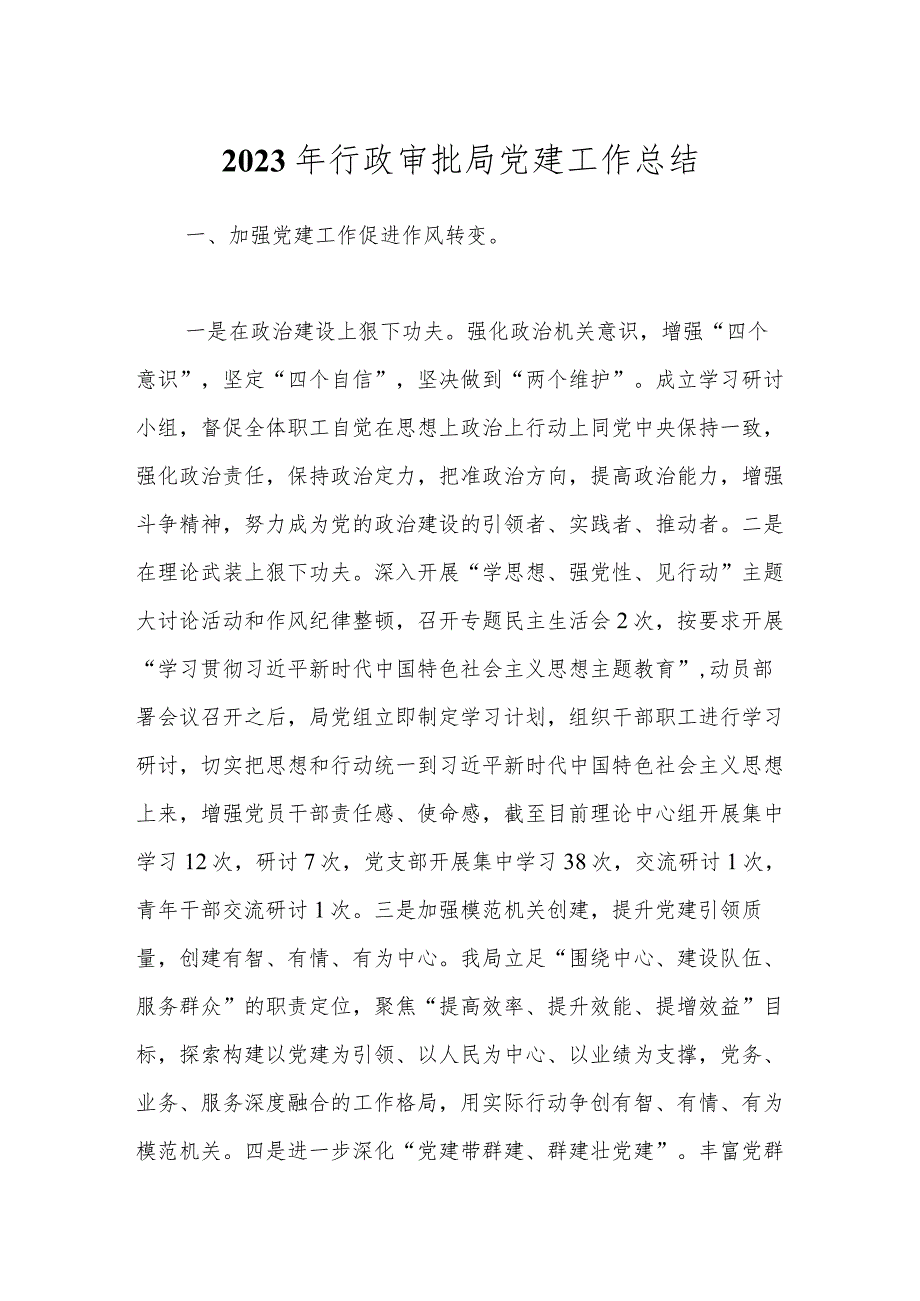 2023 年行政审批局党建工作总结
一、加强党建工作促进作风转变。
一是在政治建设上狠下功夫。强化政治机关意识，增强“四个
意识”，坚定“四个自信”，坚决做到“两个维护”。成立学习研讨
小组，督促全体职工自觉在思想上政治上行动上同党中央保持一致，
强化政治责任，保持政治定力，把准政治方向，提高政治能力，增强
斗争精神，努力成为党的政治建设的引领者、实践者、推动者。二是
在理论武装上狠下功夫。深入开展“学思想、强党性、见行动”主题
大讨论活动和作风纪律整顿，召开专题民主生活会 2 次，按要求开展
“学习贯彻习近平新时代中国特色社会主义思想主题教育”,动员部
署会议召开之后，局党组立即制定学习计划，组织干部职工进行学习
研讨，切实把思想和行动统一到习近平新时代中国特色社会主义思想
上来，增强党员干部责任感、使命感，截至目前理论中心组开展集中
学习 12 次，研讨 7 次，党支部开展集中学习 38 次，交流研讨 1 次，
青年干部交流研讨 1 次。三是加强模范机关创建，提升党建引领质
量，创建有智、有情、有为中心。我局立足“围绕中心、建设队伍、
服务群众”的职责定位，聚焦“提高效率、提升效能、提增效益”目
标，探索构建以党建为引领、以人民为中心、以业绩为支撑，党务、
业务、服务深度融合的工作格局，用实际行动争创有智、有情、有为
模范机关。四是进一步深化“党建带群建、群建壮党建”。丰富党群